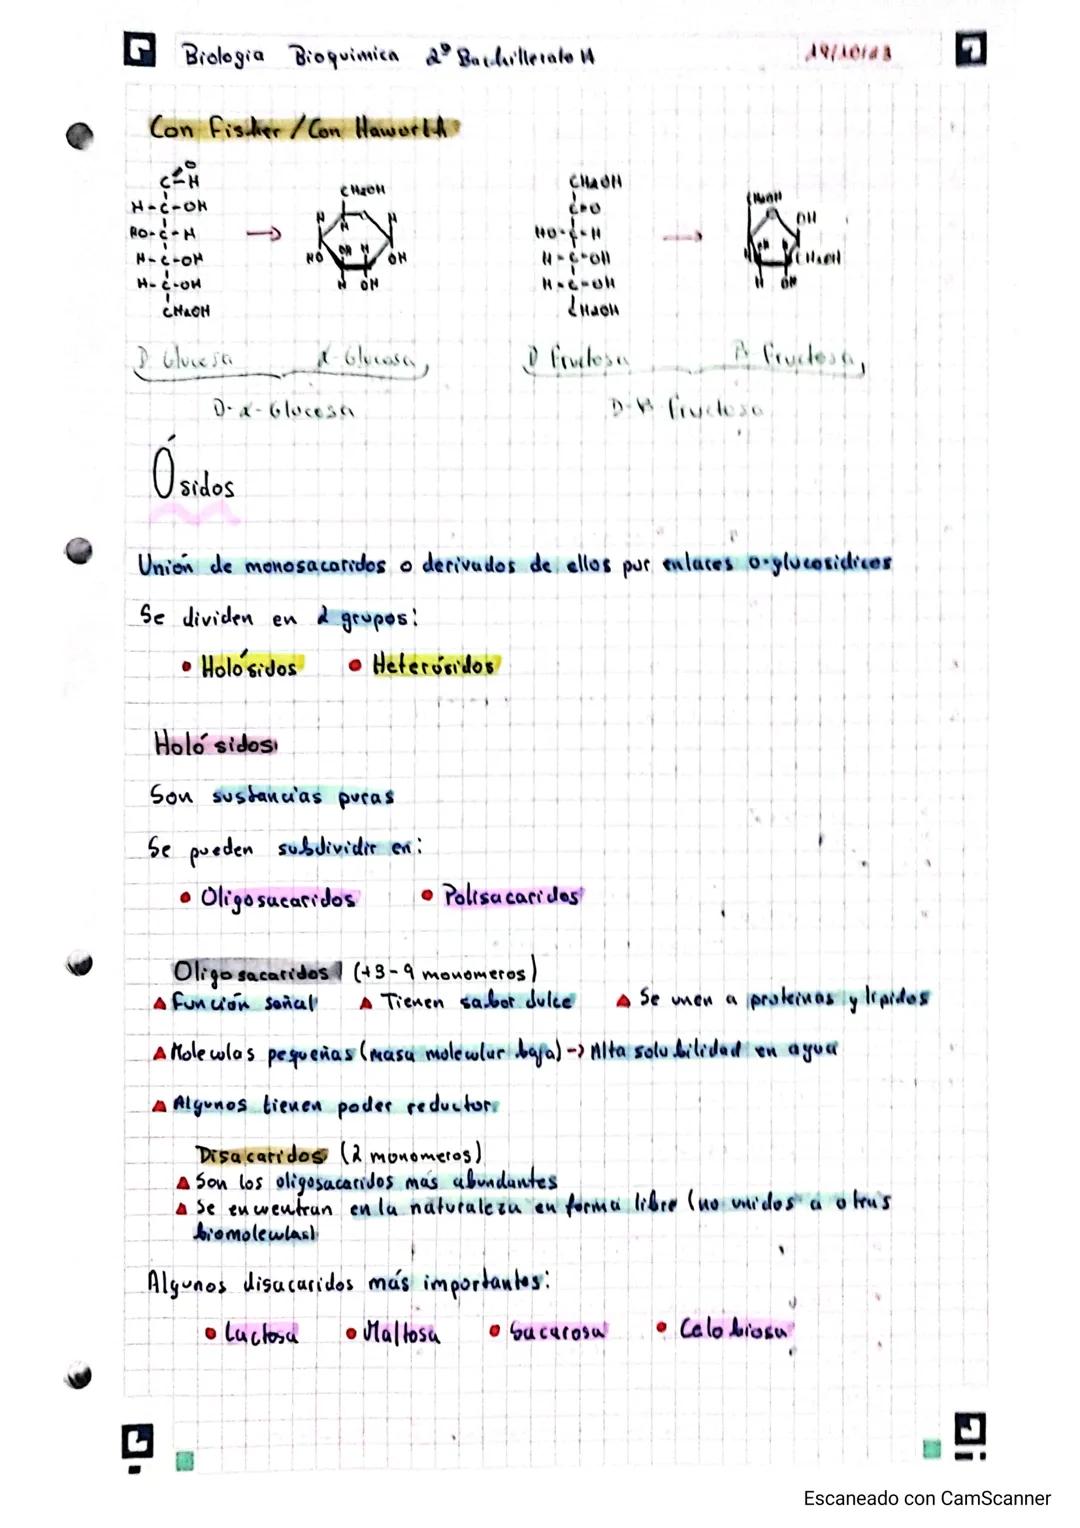 Biologia Bioquimica 2º Bachillerato A 19/10/23
Con Fisher / Con Haworth
C=O
C-H
H-C-OH
HO-C-H
H-C-OH
H-C-OH
CH2OH
CH2OH
H H
H
HO OH H OH
H OH
CH2OH
C=O
HO-C-H
H-C-OH
H-C-OH
CH2OH
CH2OH OH
CH2OH
H OH
D Glucosa α-Glucosa D Fructosa B Fructosa
D-α-Glucosa D-B-Fructosa
Ósidos
Unión de monosacaridos o derivados de ellos por enlaces o-glucosidicos
Se dividen en 2 grupos:
• Holósidos • Heterósidos
Holósidos
Son sustancias puras
Se pueden subdividir en:
• Oligosacaridos • Polisacaridos
Oligosacaridos (+3-9 monomeros)
Función señal Tienen sabor dulce Se unen a proteinas y lipidos
Moleculas pequeñas (masa molecular baja) -> Alta solubilidad en agua
Algunos tienen poder reductor
Disacaridos (2 monomeros)
Son los oligosacaridos más abundantes
Se encuentran en la naturaleza en forma libre (no unidos a otras
biomoleculas)
Algunos disacaridos más importantes:
• Lactosa • Maltosa • Sacarosa • Celobiosa
Escaneado con CamScanner